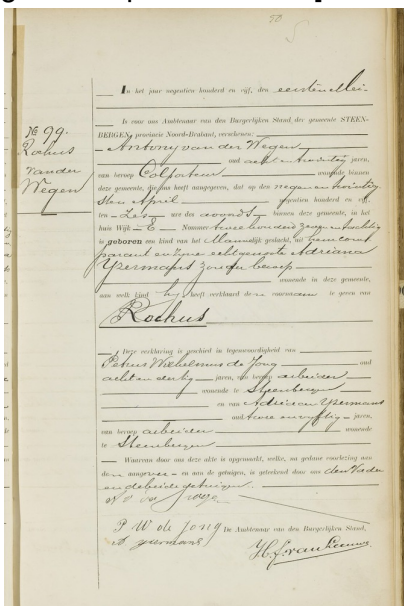 50
In het jaar negentien honderd en vijf, den eersten Mei
is voor ons Ambtenaar van den Burgerlijken Stand, der gemeente STEEN-
BERGEN, provincie Noord-Brabant, verschenen:
No 99.
Rochus
van der
Wegen
Antony van der Wegen
oud acht en twintig jaren,
van beroep Colporteur wonende binnen
deze gemeente, die ons heeft aangegeven, dat op den negen en twintig
sten April negentien honderd en vijf
ten zes ure des avonds binnen deze gemeente, in het
huis Wijk E Nummer twee honderd zeven en tachtig
is geboren een kind van het Mannelijk geslacht, uit hem comparant en zijne echtgenoote Adriana
Yzermans zonder beroep
wonende in deze gemeente,
aan welk kind hij heeft verklaard den voornaam te geven van
Rochus
Deze verklaring is geschied in tegenwoordigheid van
Petrus Wilhelmus de Jong oud
acht en veertig jaren, van beroep arbeider
wonende te Steenbergen
en van Adriaan Yzermans
oud twee en vijftig jaren,
van beroep arbeider wonende
te Steenbergen
Waarvan door ons deze akte is opgemaakt, welke, na gedane voorlezing aan
den aangever en aan de getuigen, is geteekend door ons den Vader
en de beide getuigen.
P W de Jong De Ambtenaar van den Burgerlijken Stand,
A yzermans